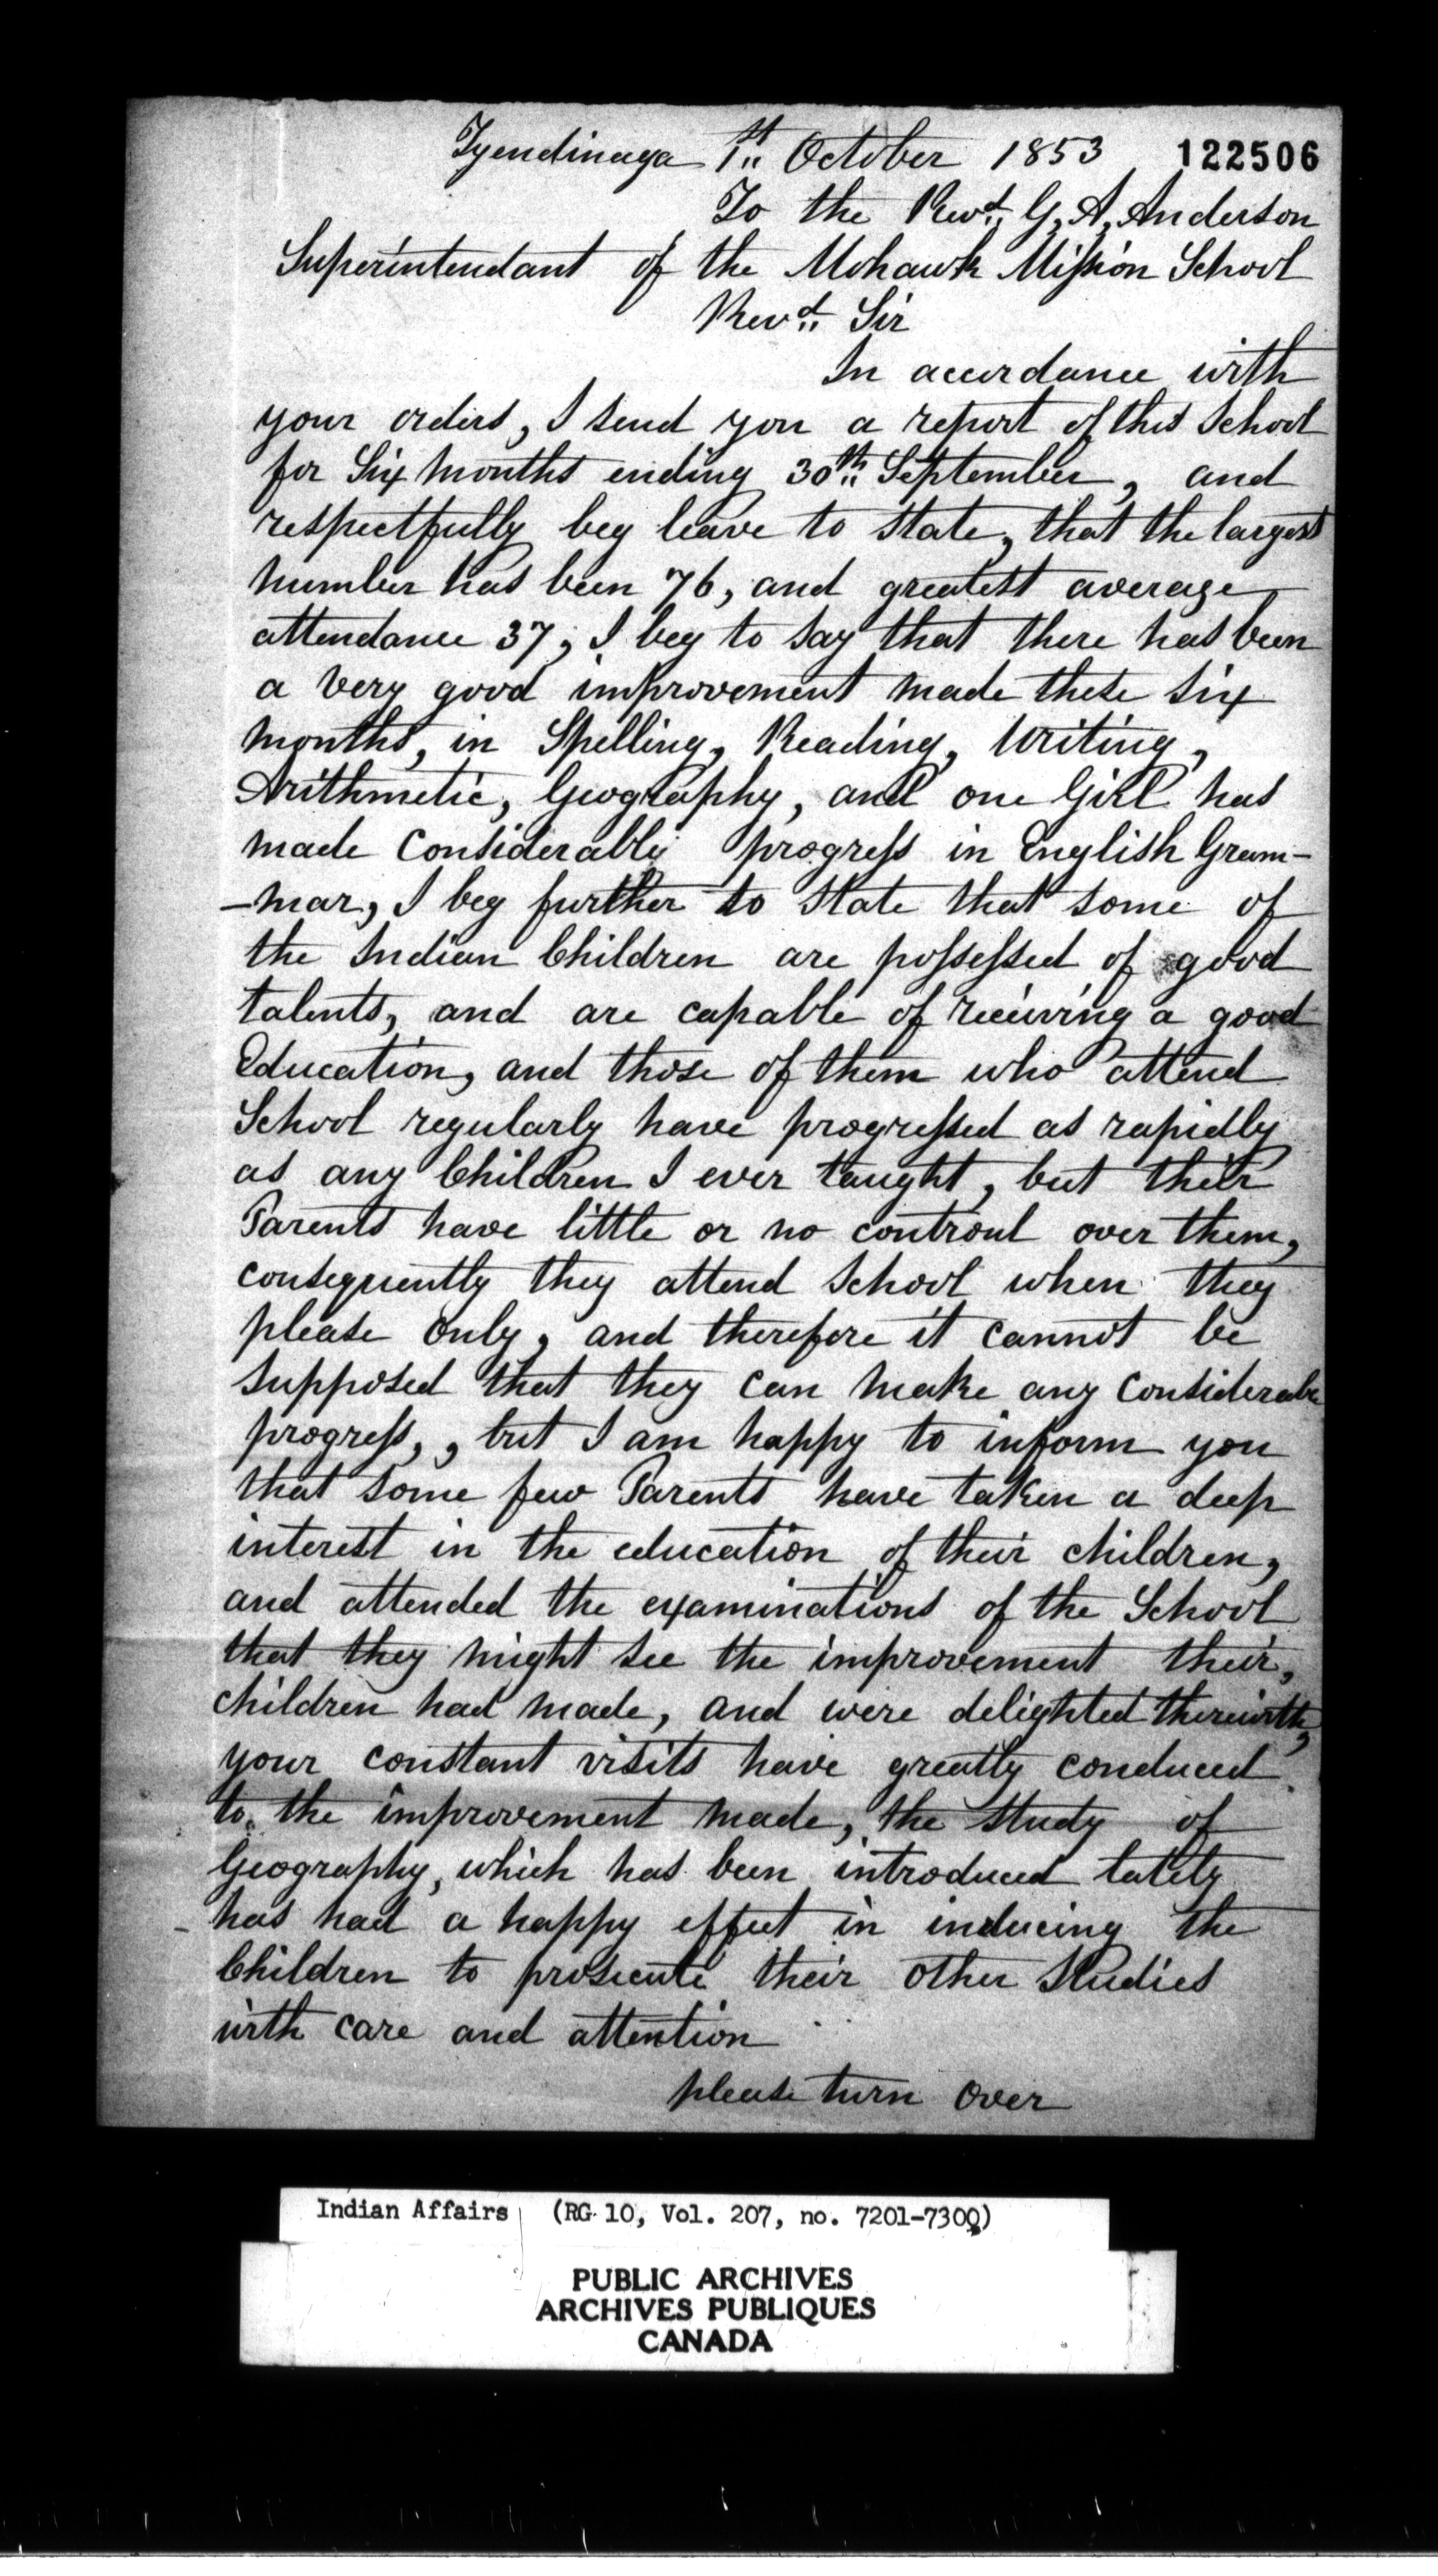 Tyendinaga 1st October 1853 122506
To the Revd. G. A. Anderson
Superintendant of the Mohawk Mission School
Revd. Sir
In accordance with
your orders, I send you a report of this School
for Six months ending 30th September, and
respectfully beg leave to state, that the largest
number has been 76, and greatest average
attendance 37, I beg to say that there has been
a very good improvement made these six
months, in Spelling, Reading, Writing,
Arithmetic, Geography, and one Girl has
made Considerable progress in English Gram-
-mar, I beg further to state that some of
the Indian Children are possessed of good
talents, and are capable of receiving a good
Education, and those of them who attend
School regularly have progressed as rapidly
as any Children I ever taught, but their
Parents have little or no controul over them,
consequently they attend School when they
please only, and therefore it cannot be
supposed that they can make any Considerable
progress, , but I am happy to inform you
that some few Parents have taken a deep
interest in the education of their children,
and attended the examinations of the School
that they might see the improvement their,
children had made, and were delighted therewith,
your constant visits have greatly conduced
to the improvement made, the study of
Geography, which has been introduced lately
has had a happy effect in inducing the
Children to prosecute their other studies
with care and attention
please turn over
Indian Affairs (RG 10, Vol. 207, no. 7201-7300)
PUBLIC ARCHIVES
ARCHIVES PUBLIQUES
CANADA